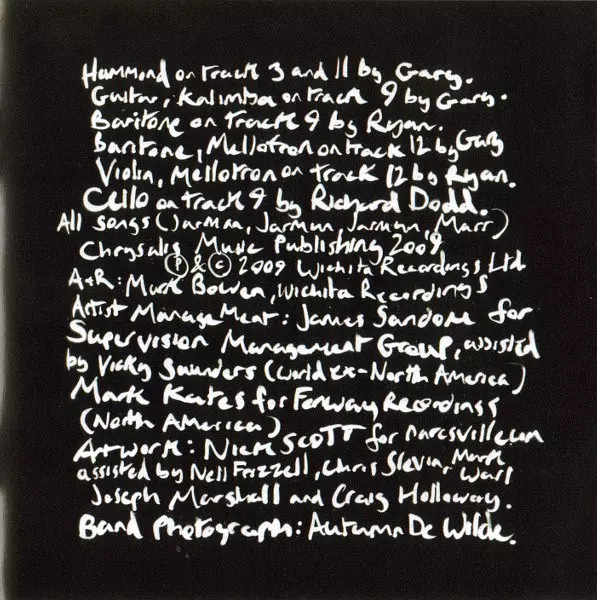 Hammond on track 3 and 11 by Gary.
Guitar, Kalimba on track 9 by Gary.
Baritone on track 9 by Ryan.
Baritone, Mellotron on track 12 by Gary
Violin, Mellotron on track 12 by Ryan.
Cello on track 9 by Richard Dodd.
All songs (Jarman, Jarman, Jarman, Marr)
Chrysalis Music Publishing 2009
℗ & © 2009 Wichita Recordings Ltd
A+R: Mark Bowen, Wichita Recordings
Artist Management: James Sandom for
Supervision Management Group, assisted
by Vicky Saunders (World ex-North America)
Mark Kates for Fenway Recordings
(North America)
Artwork: Nick Scott for narcsville.com
assisted by Nell Frizzell, Chris Slevin, Mark
Joseph Marshall and Craig Holloway.
Band Photograph: Autumn De Wilde.